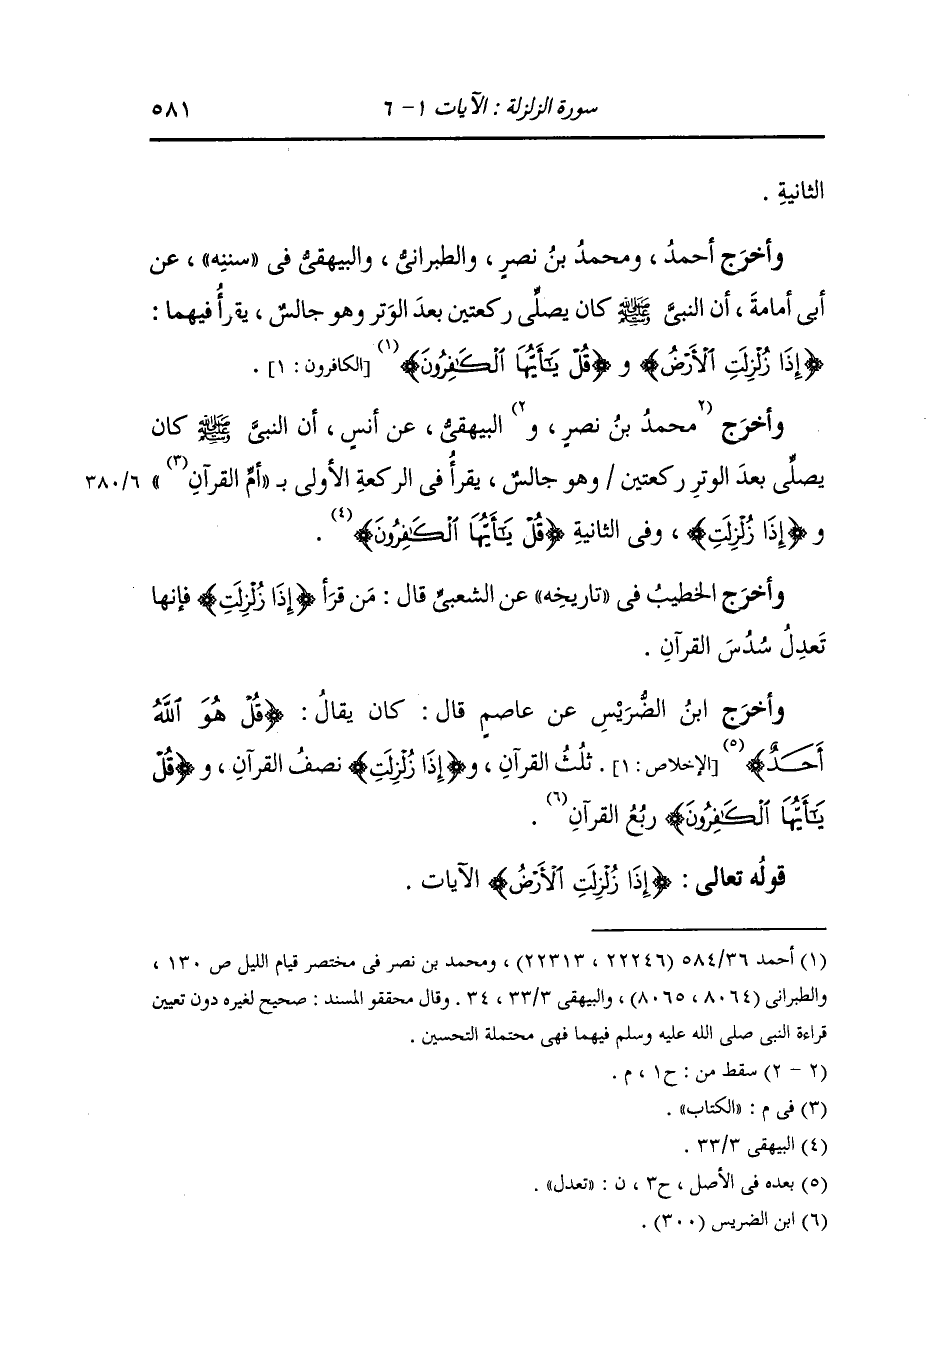 سورة الزلزلة : الآيات ١ - ٦ ٥٨١
الثانيةِ .
وأخرَج أحمدُ ، ومحمدُ بنُ نصرٍ ، والطبرانىُّ ، والبيهقىُّ فى «سننِه» ، عن
أبى أمامةَ ، أن النبىَّ ﷺ كان يصلِّى ركعتين بعدَ الوَترِ وهو جالسٌ ، يقرأُ فيهما :
﴿إِذَا زُلْزِلَتِ ٱلْأَرْضُ﴾ و ﴿قُلْ يَٰٓأَيُّهَا ٱلْكَٰفِرُونَ﴾(١) [الكافرون : ١] .
وأخرَج (٢محمدُ بنُ نصرٍ ، و٢) البيهقىُّ ، عن أنسٍ ، أن النبىَّ ﷺ كان
يصلِّى بعدَ الوترِ ركعتين / وهو جالسٌ ، يقرأُ فى الركعةِ الأولى بـ «أمِّ القرآنِ(٣)» ٣٨٠/٦
و ﴿إِذَا زُلْزِلَتِ﴾ ، وفى الثانيةِ ﴿قُلْ يَٰٓأَيُّهَا ٱلْكَٰفِرُونَ﴾(٤) .
وأخرَج الخطيبُ فى «تاريخِه» عن الشعبىِّ قال : مَن قرَأ ﴿إِذَا زُلْزِلَتِ﴾ فإنها
تَعدِلُ سُدُسَ القرآنِ .
وأخرَج ابنُ الضُّرَيْسِ عن عاصمٍ قال : كان يقالُ : ﴿قُلْ هُوَ ٱللَّهُ
أَحَدٌ﴾(٥) [الإخلاص : ١] . ثلُثُ القرآنِ ، و﴿إِذَا زُلْزِلَتِ﴾ نصفُ القرآنِ ، و ﴿قُلْ
يَٰٓأَيُّهَا ٱلْكَٰفِرُونَ﴾ ربُعُ القرآنِ(٦) .
قولُه تعالى : ﴿إِذَا زُلْزِلَتِ ٱلْأَرْضُ﴾ الآيات .
(١) أحمد ٥٨٤/٣٦ (٢٢٢٤٦ ، ٢٢٣١٣) ، ومحمد بن نصر فى مختصر قيام الليل ص ١٣٠ ،
والطبرانى (٨٠٦٤ ، ٨٠٦٥) ، والبيهقى ٣٣/٣ ، ٣٤ . وقال محققو المسند : صحيح لغيره دون تعيين
قراءة النبى صلى الله عليه وسلم فيهما فهى محتملة التحسين .
(٢ - ٢) سقط من : ح١ ، م .
(٣) فى م : «الكتاب» .
(٤) البيهقى ٣٣/٣ .
(٥) بعده فى الأصل ، ح٣ ، ن : «تعدل» .
(٦) ابن الضريس (٣٠٠) .